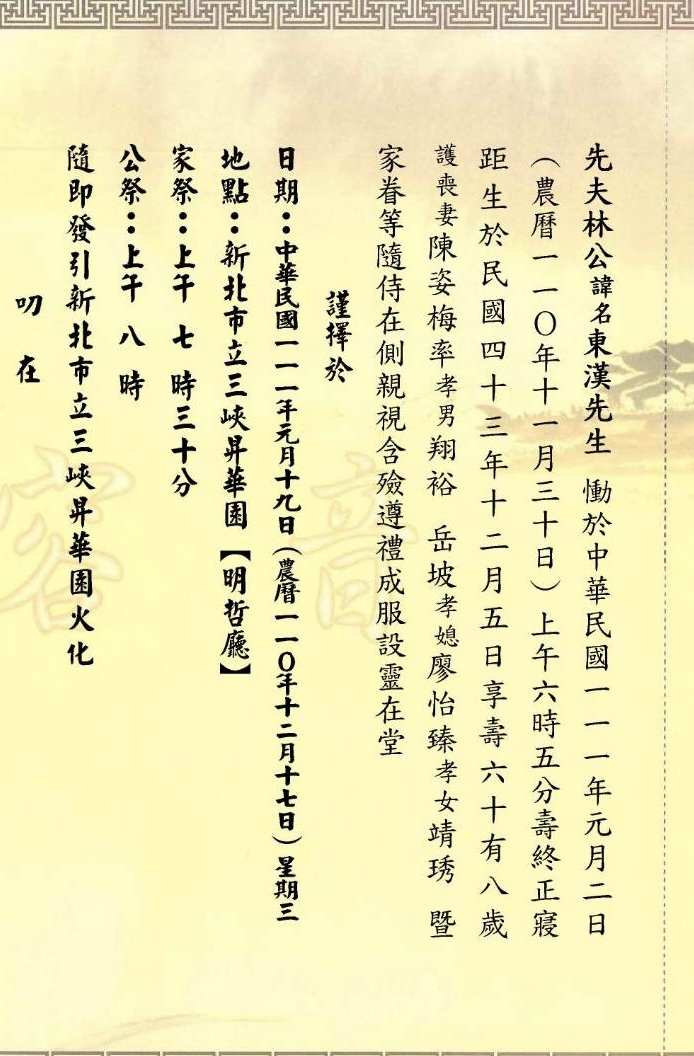 先夫林公諱名東漢先生　慟於中華民國一一一年元月二日
（農曆一一〇年十一月三十日）上午六時五分壽終正寢
距生於民國四十三年十二月五日享壽六十有八歲
護喪妻陳姿梅率孝男翔裕　岳坡孝媳廖怡臻孝女靖琇　暨
家眷等隨侍在側親視含殮遵禮成服設靈在堂
謹擇於
日期：中華民國一一一年元月十九日（農曆一一〇年十二月十七日）星期三
地點：新北市立三峽昇華園【明哲廳】
家祭：上午　七　時三十分
公祭：上午　八　時
隨即發引新北市立三峽昇華園火化
叨在
音
容